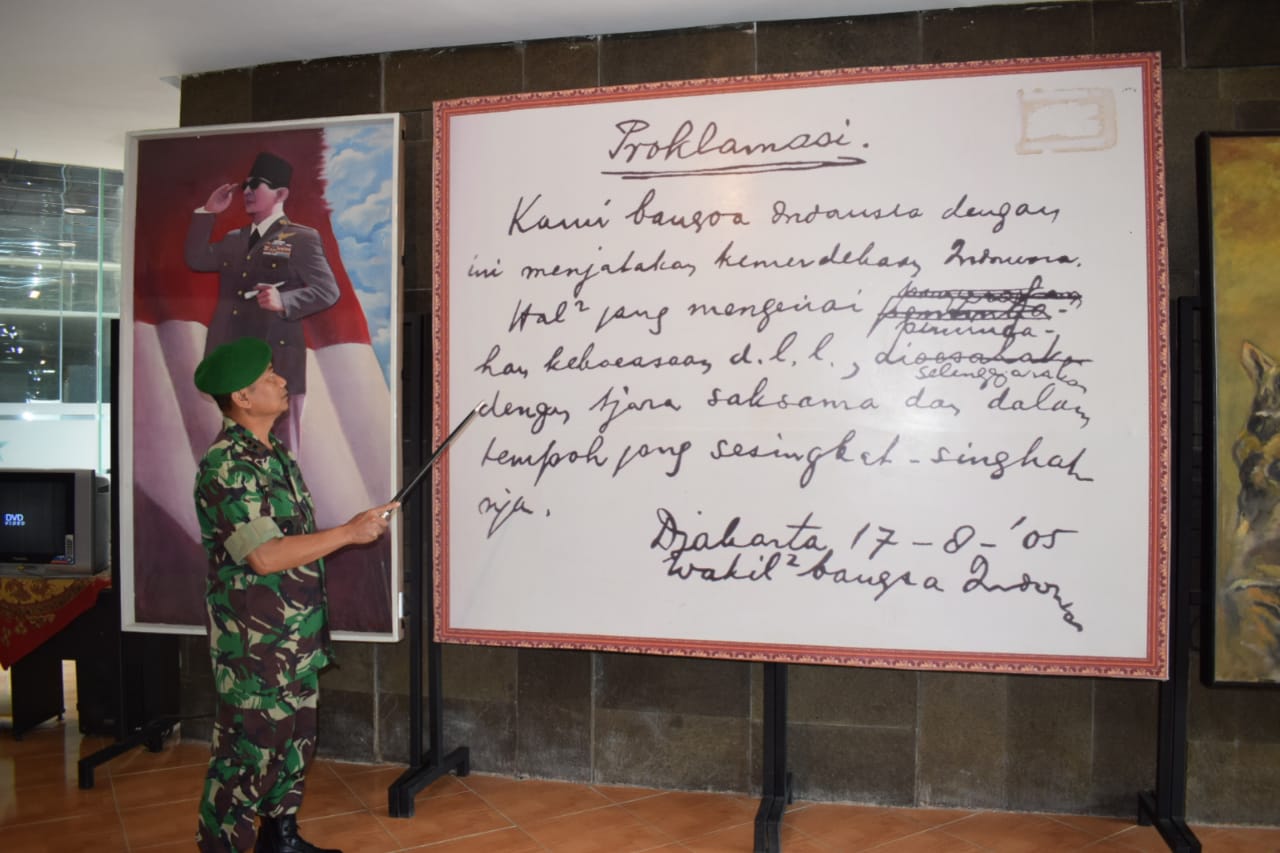 Proklamasi.
Kami bangsa Indonesia dengan
ini menjatakan kemerdekaan Indonesia.
Hal² jang mengenai
peminda-
han kekoeasaan d.l.l., dioesahakan
selenggarakan
dengan tjara saksama dan dalam
tempoh jang sesingkat-singkat
nja.
Djakarta 17-8-'05
Wakil² bangsa Indonesia
DVD
VIDEO